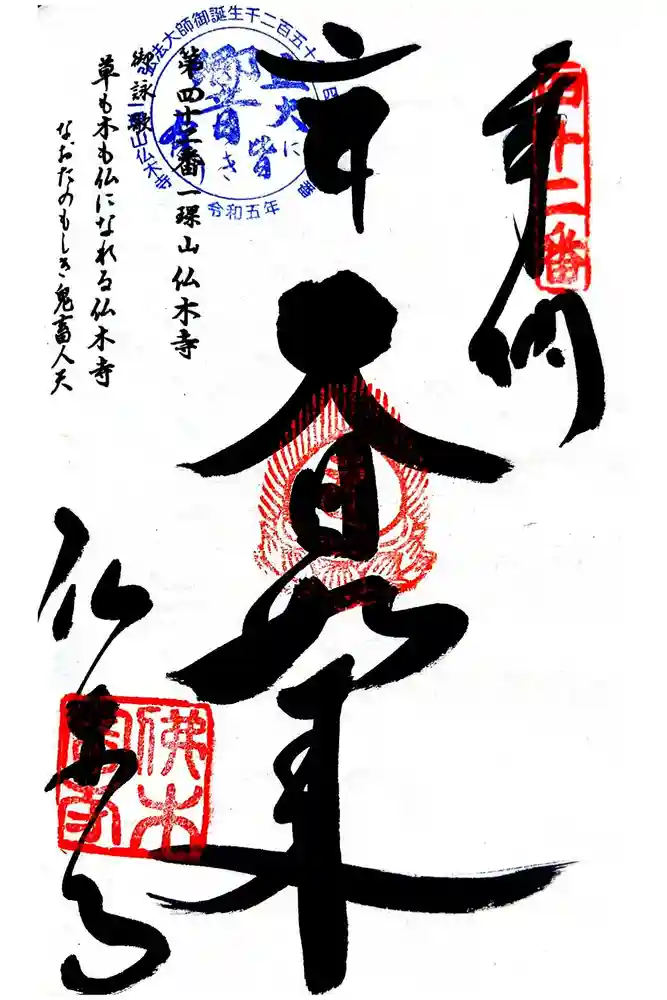 四十二番
奉納
大日如来
仏木寺
佛木寺
第四十二番 一山 仏木寺
御詠歌
草も木も仏になれる仏木寺
なおたのもしき鬼畜人天
法大師御誕生千二百五十
五大に
皆
響き
令和五年
山仏木寺